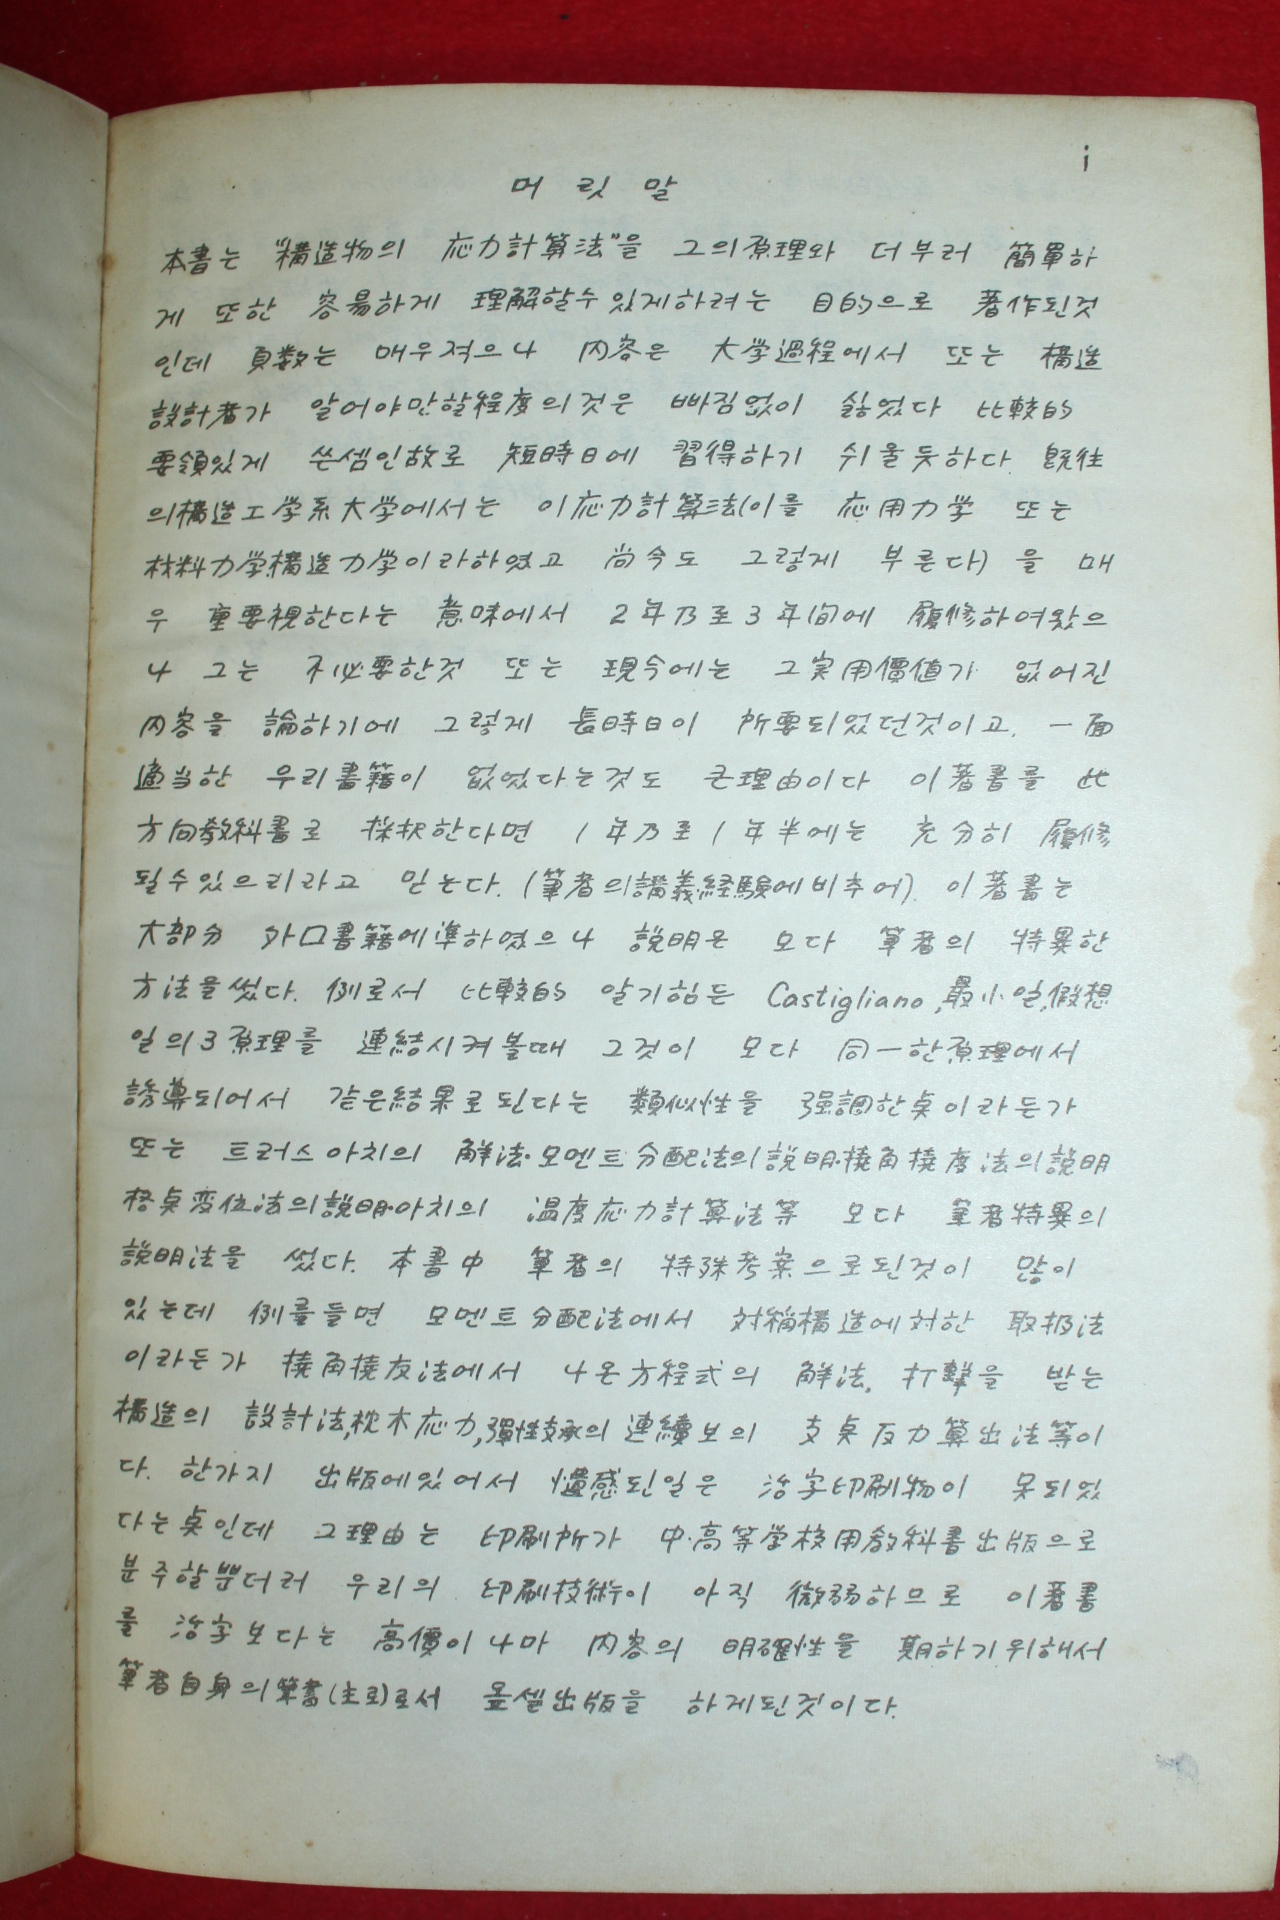 i
머릿말
本書는 "構造物의 応力計算法"을 그의原理와 더부러 簡單하
게 또한 容易하게 理解할수있게하려는 目的으로 著作된것
인데 頁数는 매우적으나 内容은 大学過程에서 또는 構造
設計者가 알어야만할程度의것은 빠짐없이 싫었다 比較的
要領있게 쓴셈인故로 短時日에 習得하기 쉬울듯하다. 既往
의構造工学系大学에서는 이応力計算法(이를 応用力学 또는
材料力学.構造力学이라하였고 尚今도 그렇게 부른다)을 매
우 重要視한다는 意味에서 2年乃至3年间에 履修하여왔으
나 그는 不必要한것 또는 現今에는 그実用價値가 없어진
内容을 論하기에 그렇게 長時日이 所要되었던것이고. 一面
適当한 우리書籍이 없었다는것도 큰理由이다 이著書를 此
方向教科書로 採択한다면 1年乃至1年半에는 充分히 履修
될수있으리라고 믿는다. (筆者의講義経験에비추어). 이著書는
大部分 外口書籍에準하였으나 說明은 모다 筆者의 特異한
方法을썼다. 例로서 比較的 알기힘든 Castigliano,最小일,假想
일의3原理를 連結시켜볼때 그것이 모다 同一한原理에서
誘導되어서 같은結果로된다는 類似性을 强調한点이라든가
또는 트러스아치의 解法.모멘트分配法의說明.撓角撓度法의說明
格点変位法의說明.아치의 温度応力計算法等 모다 筆者特異의
說明法을 썼다. 本書中 筆者의 特殊考案으로된것이 많이
있는데 例를들면 모멘트分配法에서 対稱構造에対한 取扱法
이라든가 撓角撓度法에서 나온方程式의 解法, 打擊을 받는
構造의 設計法,枕木応力,彈性支承의連續보의 支点反力算出法等이
다. 한가지 出版에있어서 遺感된일은 活字印刷物이 못되었
다는点인데 그理由는 印刷所가 中.高等学校用教科書出版으로
분주할뿐더러 우리의 印刷技術이 아직 微弱하므로 이著書
를 活字보다는 高價이나마 内容의 明確性을 期하기위해서
筆者自身의筆書(主로)로서 옾셑出版을 하게된것이다.